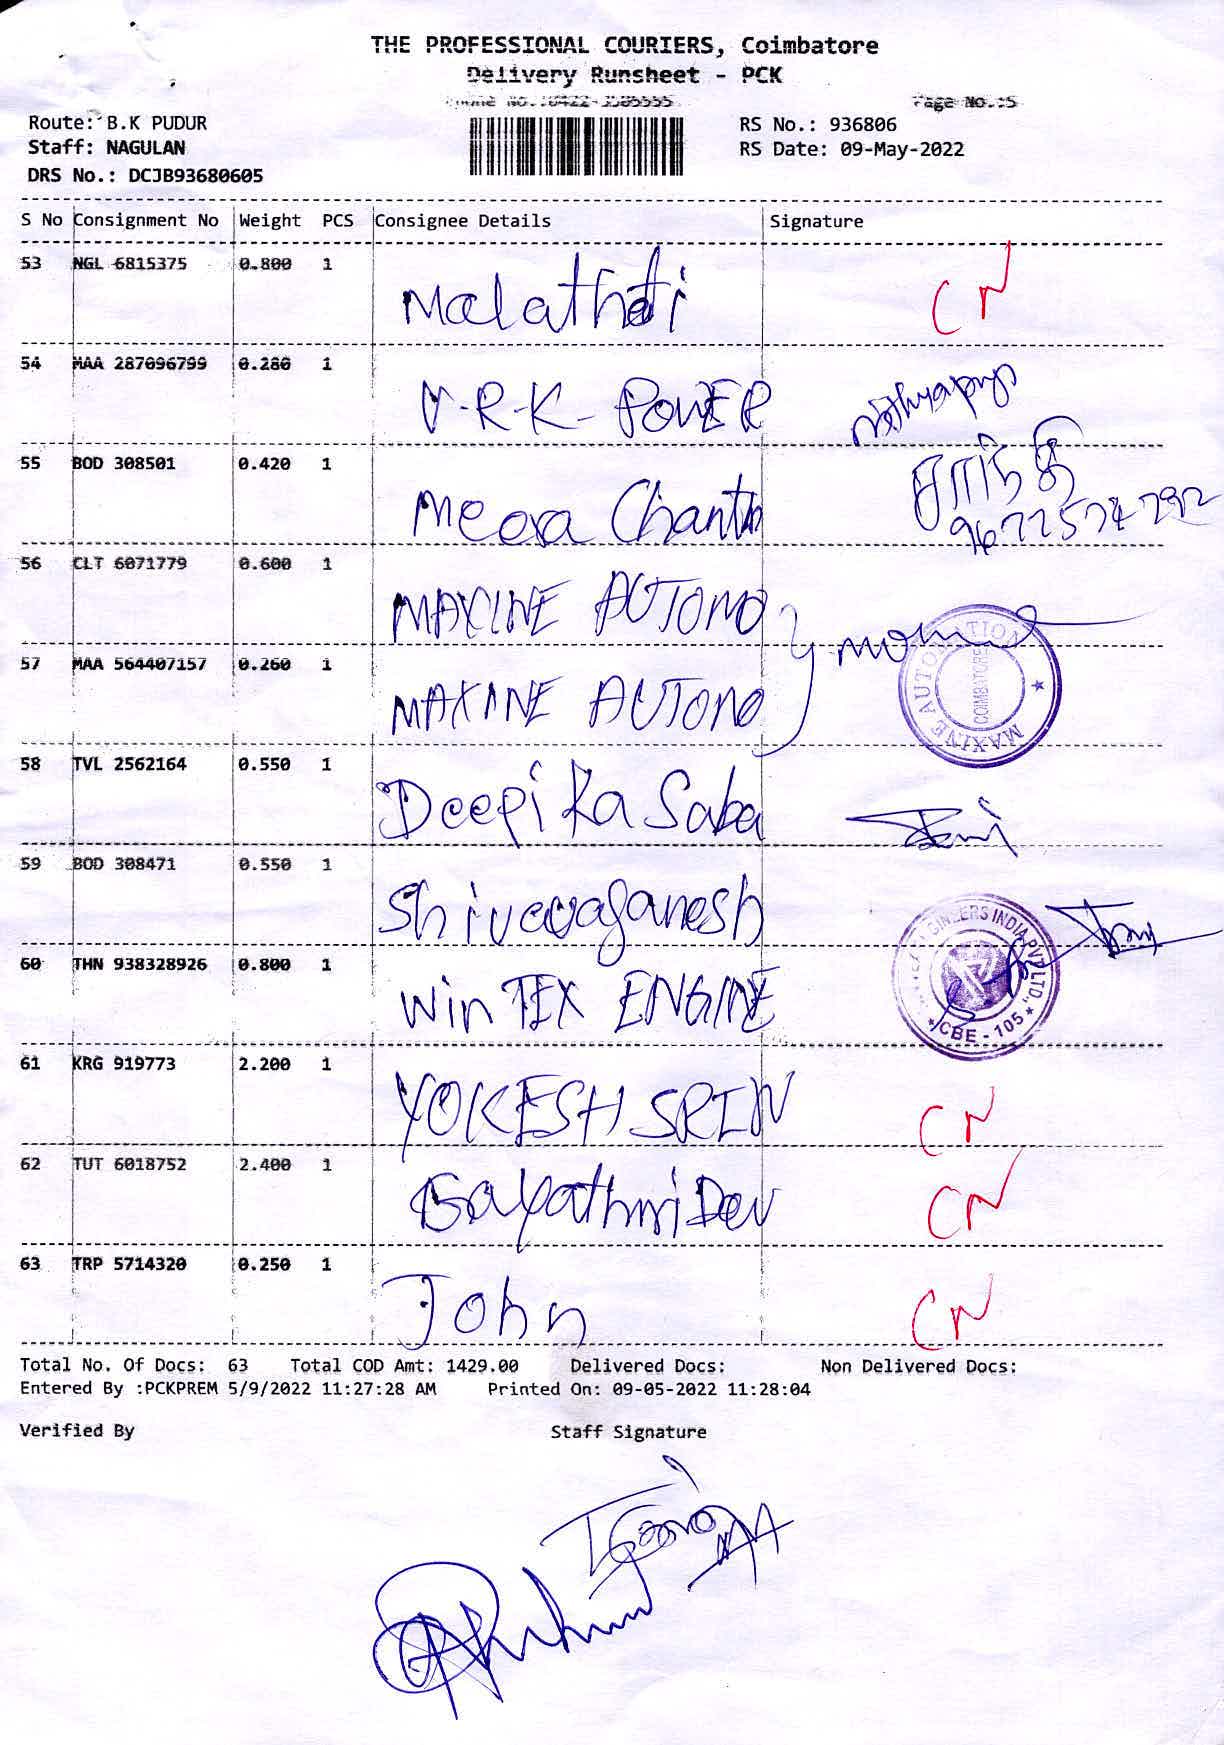 THE PROFESSIONAL COURIERS, Coimbatore
Delivery Runsheet - PCK
Page No.:5
Route: B.K PUDUR
RS No.: 936806
Staff: NAGULAN
RS Date: 09-May-2022
DRS No.: DCJB93680605
S No Consignment No Weight PCS Consignee Details Signature
53 NGL 6815375 0.800 1 CN
54 MAA 287096799 0.280 1 V-R-K- POWER
55 BOD 308501 0.420 1 Meera Chanth சாந்தி
9677574792
56 CLT 6071779 0.600 1 MAXINE AUTOMO
57 MAA 564407157 0.260 1 MAXINE AUTOMO
MAXINE AUTOMATION
COIMBATORE
58 TVL 2562164 0.550 1 Deepika Saba
59 BOD 308471 0.550 1
60 THN 938328926 0.800 1 WinTEX ENGINE
INDIA PVT LTD.,
CBE - 105
61 KRG 919773 2.200 1 YOKESH SRIN CN
62 TUT 6018752 2.400 1 Gayathri Dev CN
63 TRP 5714320 0.250 1 John CN
Total No. Of Docs: 63 Total COD Amt: 1429.00 Delivered Docs: Non Delivered Docs:
Entered By :PCKPREM 5/9/2022 11:27:28 AM Printed On: 09-05-2022 11:28:04
Verified By Staff Signature